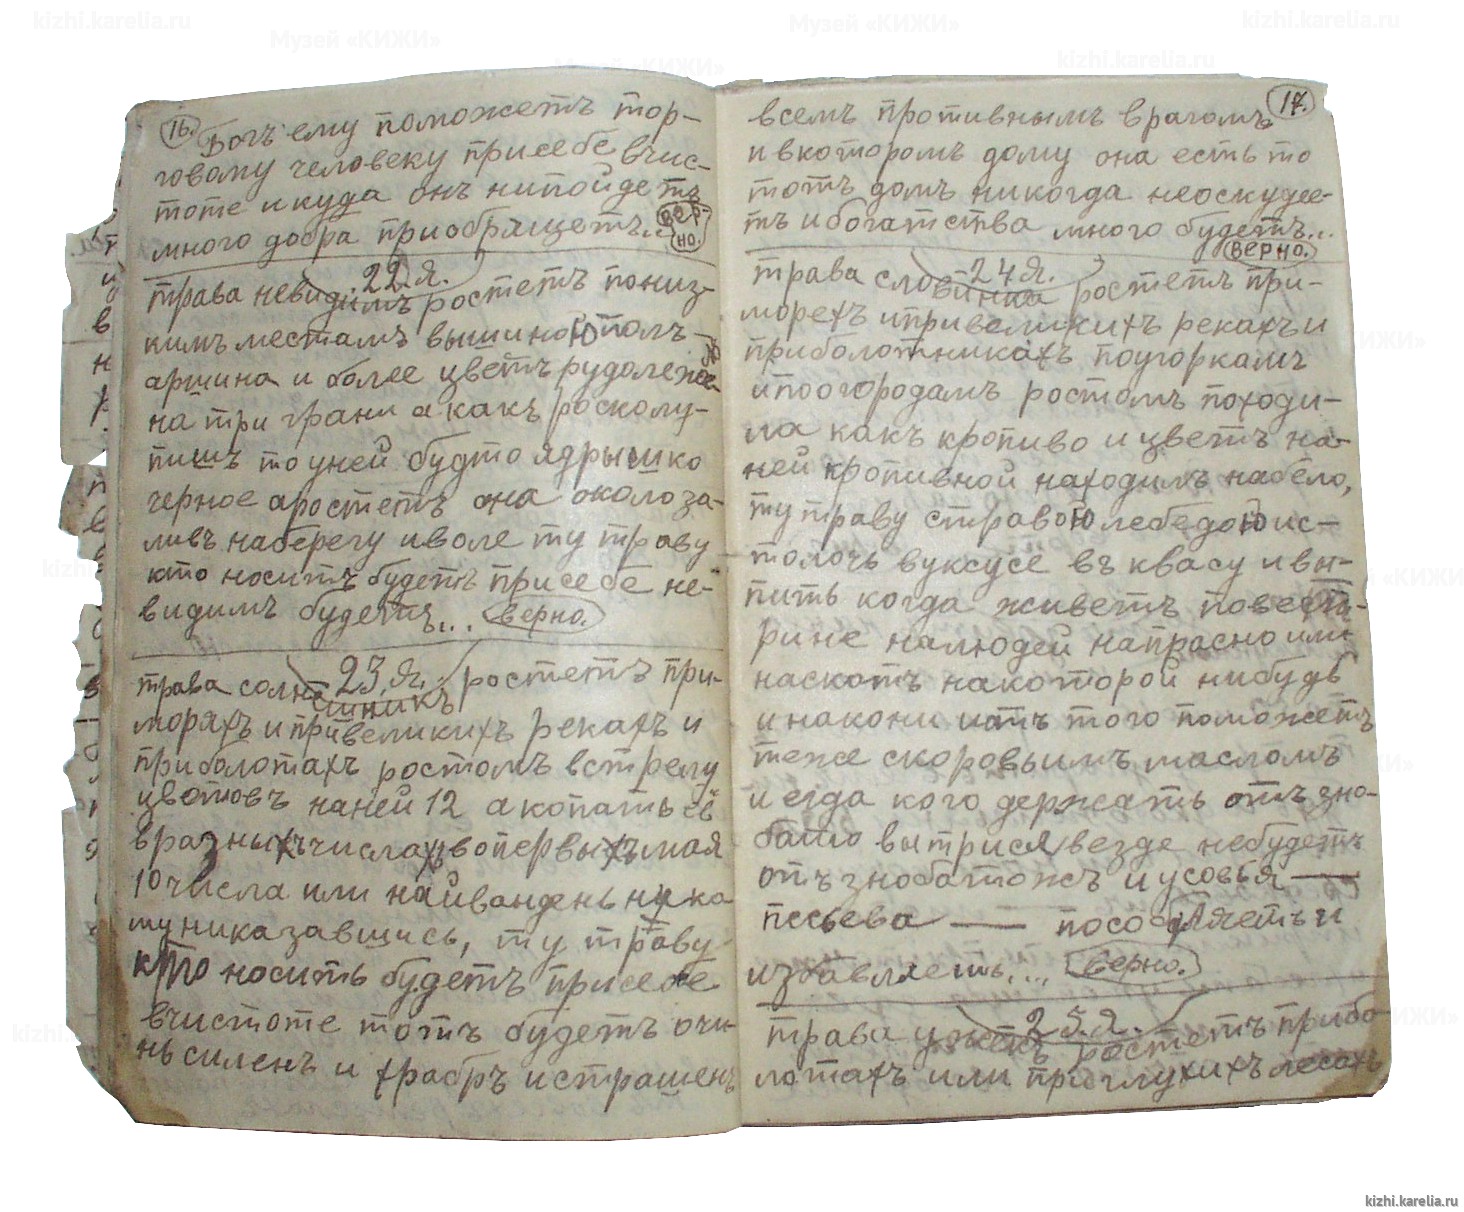 kizhi.karelia.ru
Музей «КИЖИ»
Музей «КИЖИ»
kizhi.karelia.ru
kizhi.karelia.ru
16.
Богъ ему поможетъ тор-
говому человеку присебе вчис-
тоте икуда онъ нипойдетъ
много добра приобрящетъ.. вер-
но.
22.я.
трава невидимъ ростетъ пониз-
кимъ местамъ вышиною полъ-
аршина и более цветъ рудожо-
на три грани а какъ росколу-
пишъ то уней будто ядрышко
черное аростетъ она около за-
ливъ наберегу иволе ту траву
кто носитъ будетъ присебе не-
видимъ будетъ... верно.
23.я.
трава солнашникъ ростетъ при-
моряхъ и привеликихъ рекахъ и
приболотахъ ростомъ встрелу
цвотовъ наней 12 а копать её
вразныхъ числахъ вопервыхъ мая
10 числа или наивандень ника
му никазавшись, ту траву
кто носить будетъ присебе
вчистоте тотъ будетъ очи-
нь силенъ и храбръ истрашенъ
17.
всемъ противнымъ врагомъ
и вкоторомъ дому она есть то
тотъ домъ никогда неоскудее-
тъ и богатства много будетъ...
верно.
24.я.
трава словинка ростетъ при-
морехъ ипривеликихъ рекахъ и
приболотникахъ подгоркамъ
ипоогородамъ ростомъ походи-
ла какъ кропиво и цветъ на-
ней кропивной находилъ набело,
ту траву странию лебедою ис-
толочь вуксусе въ квасу ивы-
пить когда живетъ поветь-
рине налюдей напрасно или
наскотъ накоторой нибудь
и накони иотъ того поможетъ
теже скоровьимъ масломъ
и егда кого держать отъ зно-
бото вытрися везде небудетъ
отъ знобатожъ и усовья —
песьева — пособляетъ и
избавляетъ.... верно.
25.я.
трава ужекъ ростетъ прибо-
лотахъ или приглухихъ лесахъ
kizhi.karelia.ru